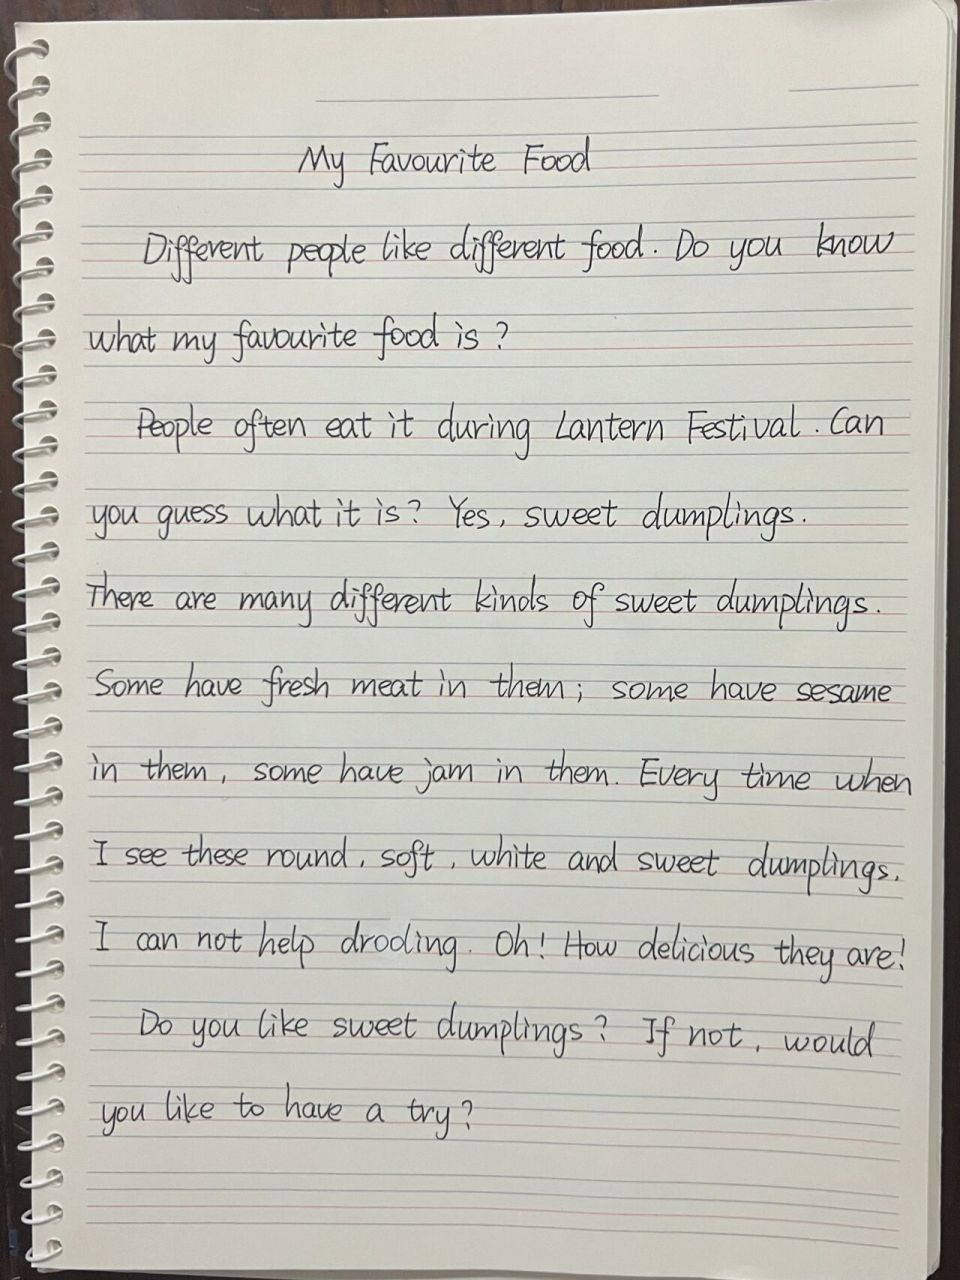 My Favourite Food
Different people like different food. Do you know
what my favourite food is?
People often eat it during Lantern Festival. Can
you guess what it is? Yes, sweet dumplings.
There are many different kinds of sweet dumplings.
Some have fresh meat in them; some have sesame
in them, some have jam in them. Every time when
I see these round, soft, white and sweet dumplings,
I can not help drooling. Oh! How delicious they are!
Do you like sweet dumplings? If not, would
you like to have a try?